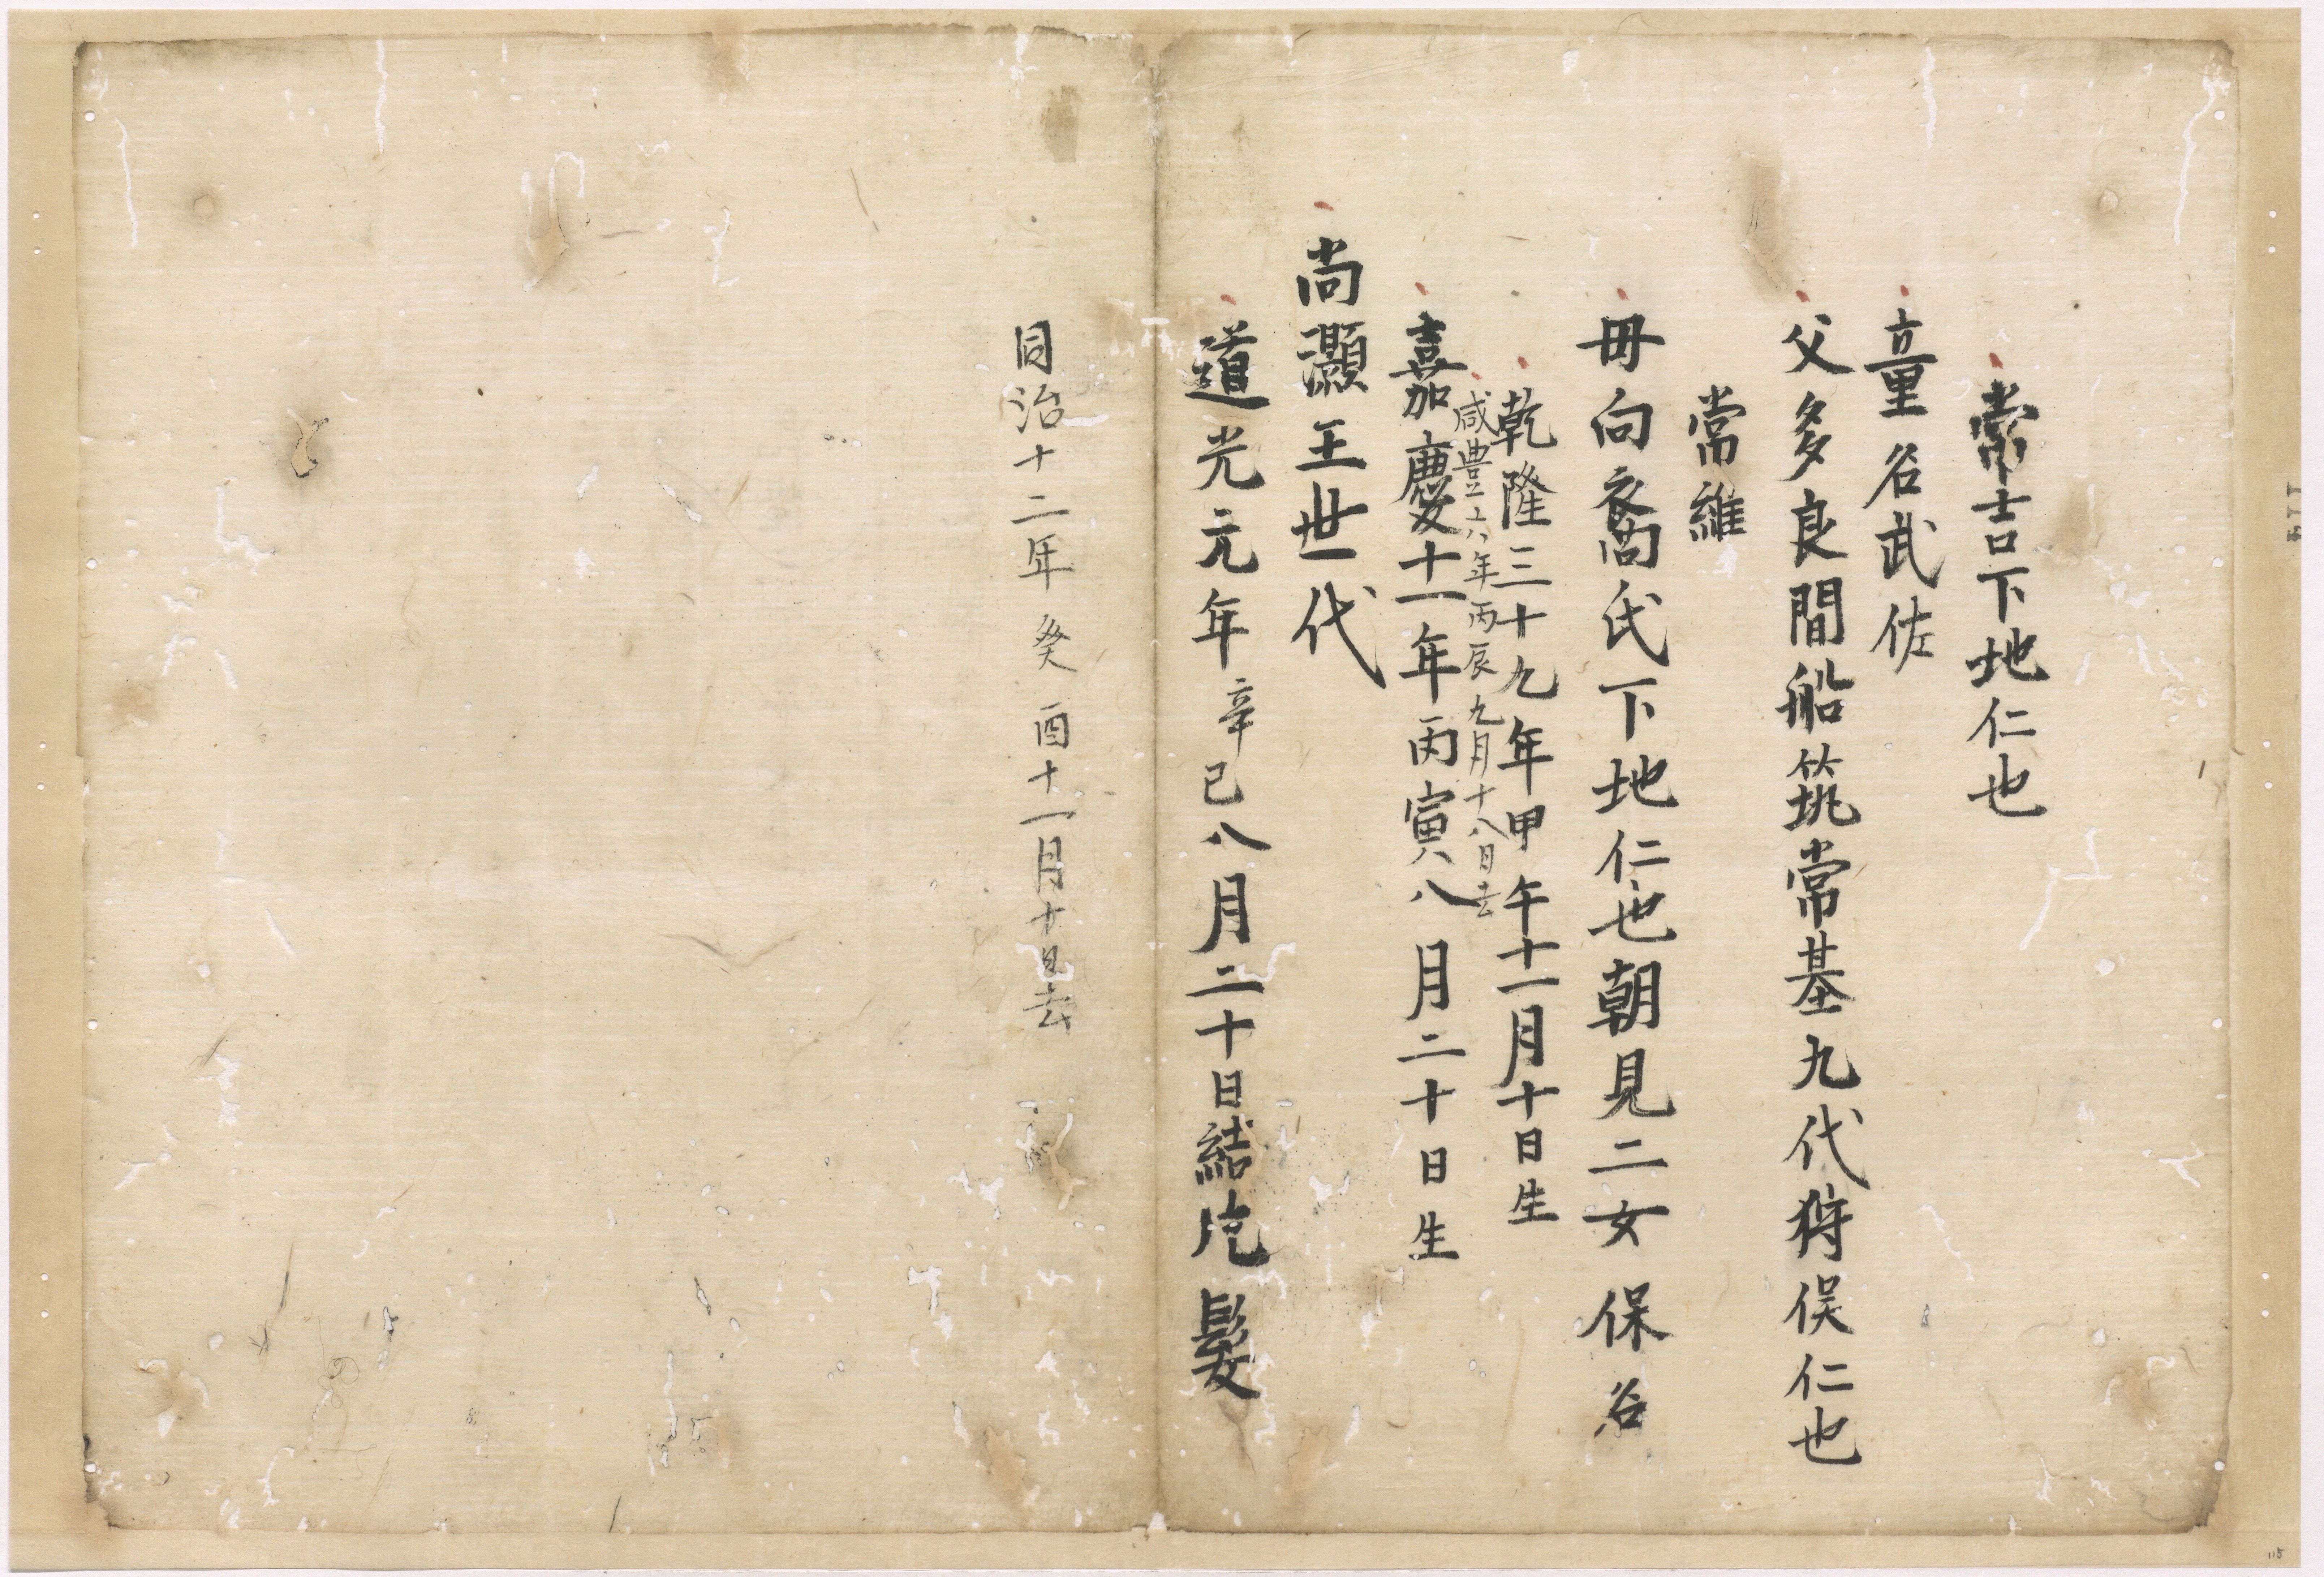 常吉下地仁也
童名武佐
父多良間船筑常基九代狩俣仁也
常維
毋向裔氏下地仁也朝見二女保名
乾隆三十九年甲午十一月十日生
咸豊六年丙辰九月十八日去
嘉慶十一年丙寅八月二十日生
尚灝王世代
道光元年辛巳八月二十日結片髪
同治十二年癸酉十一月廿日去
115